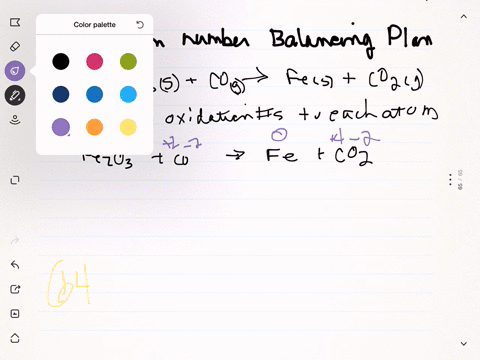 Color palette
number Balancing Plan
(s) + CO(g) → Fe(s) + CO2(g)
oxidation #s to each atom
+2 -2 0 +4 -2
Fe2O3 + CO → Fe + CO2
64